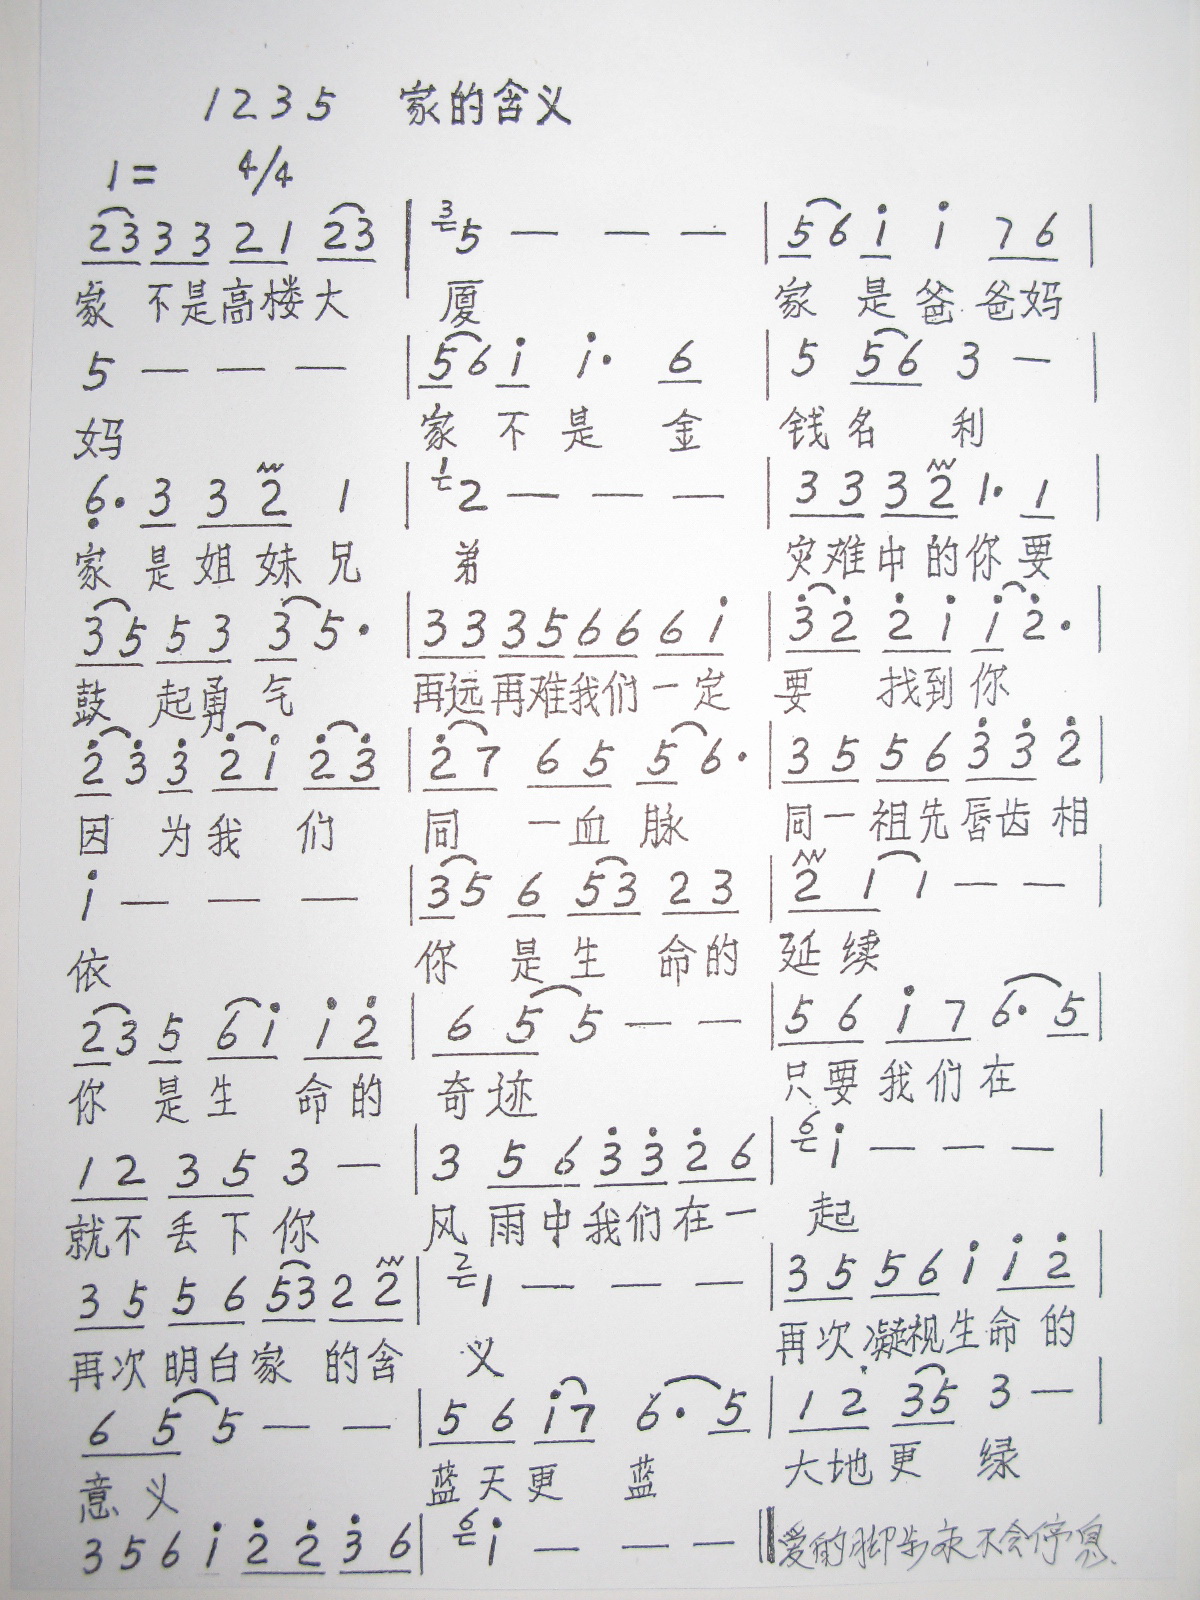 1 2 3 5 家的含义
1= 4/4
23 33 21 23 | 3 5 — — — | 5 6 i i 7 6 |
家 不是高楼大 厦 家 是 爸 爸妈
5 — — — | 5 6 i i· 6 | 5 5 6 3 — |
妈 家 不 是 金 钱 名 利
6· 3 3 2 1 | 1 2 — — — | 3 3 3 2 1· 1 |
家 是 姐 妹 兄 弟 灾难中的你要
3 5 5 3 3 5· | 3 3 3 5 6 6 6 i | 3 2 2 i i 2· |
鼓 起勇 气 再远再难我们一定 要 找到你
2 3 3 2 i 2 3 | 2 7 6 5 5 6· | 3 5 5 6 3 3 2 |
因 为我 们 同 一血 脉 同一祖先唇齿相
i — — — | 3 5 6 5 3 2 3 | 2 1 1 — — |
依 你 是 生 命的 延续
2 3 5 6 i i 2 | 6 5 5 — — | 5 6 i 7 6· 5 |
你 是 生 命的 奇迹 只要我们在
1 2 3 5 3 — | 3 5 6 3 3 2 6 | 6 i — — — |
就不丢下你 风雨中我们在一 起
3 5 5 6 5 3 2 2 | 2 1 — — — | 3 5 5 6 i i 2 |
再次明白家 的含 义 再次凝视生命的
6 5 5 — — | 5 6 i 7 6· 5 | 1 2 3 5 3 — |
意义 蓝天更 蓝 大地更 绿
3 5 6 i 2 2 3 6 | 6 i — — — ‖ 爱的脚步永不会停息